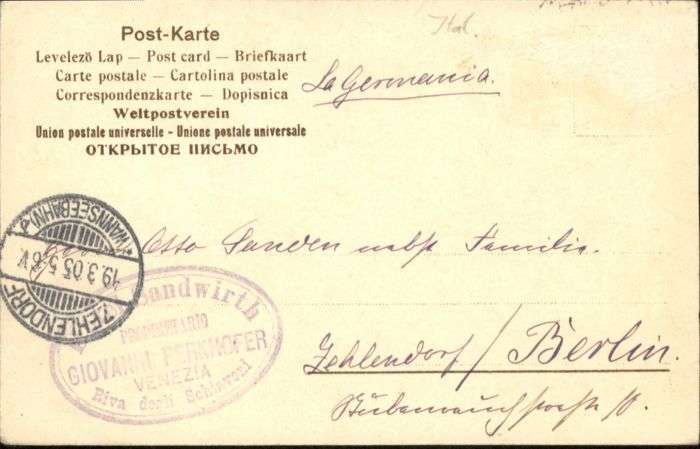 Post-Karte
Levelező Lap — Post card — Briefkaart
Carte postale — Cartolina postale
Correspondenzkarte — Dopisnica
Weltpostverein
Union postale universelle - Unione postale universale
ОТКРЫТОЕ ПИСЬМО
Ital.
La Germania.
(WANNSEEBAHN)
19.3.05.5-6V.
ZEHLENDORF
Otto Sanden nebst Familie.
Sandwirth
PROPRIETARIO
GIOVANNI PERKHOFER
VENEZIA
Riva degli Schiavoni
Zehlendorf / Berlin.
Stubenrauchstraße 10.